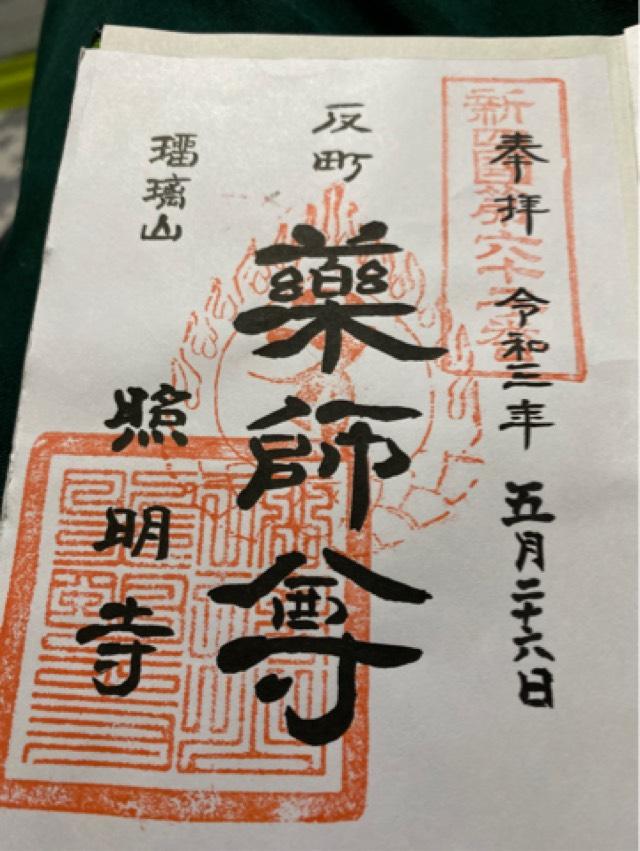 奉拝 令和三年 五月二十六日
新四国第六十二番
反町
藥師尊
瑠璃山
照明寺